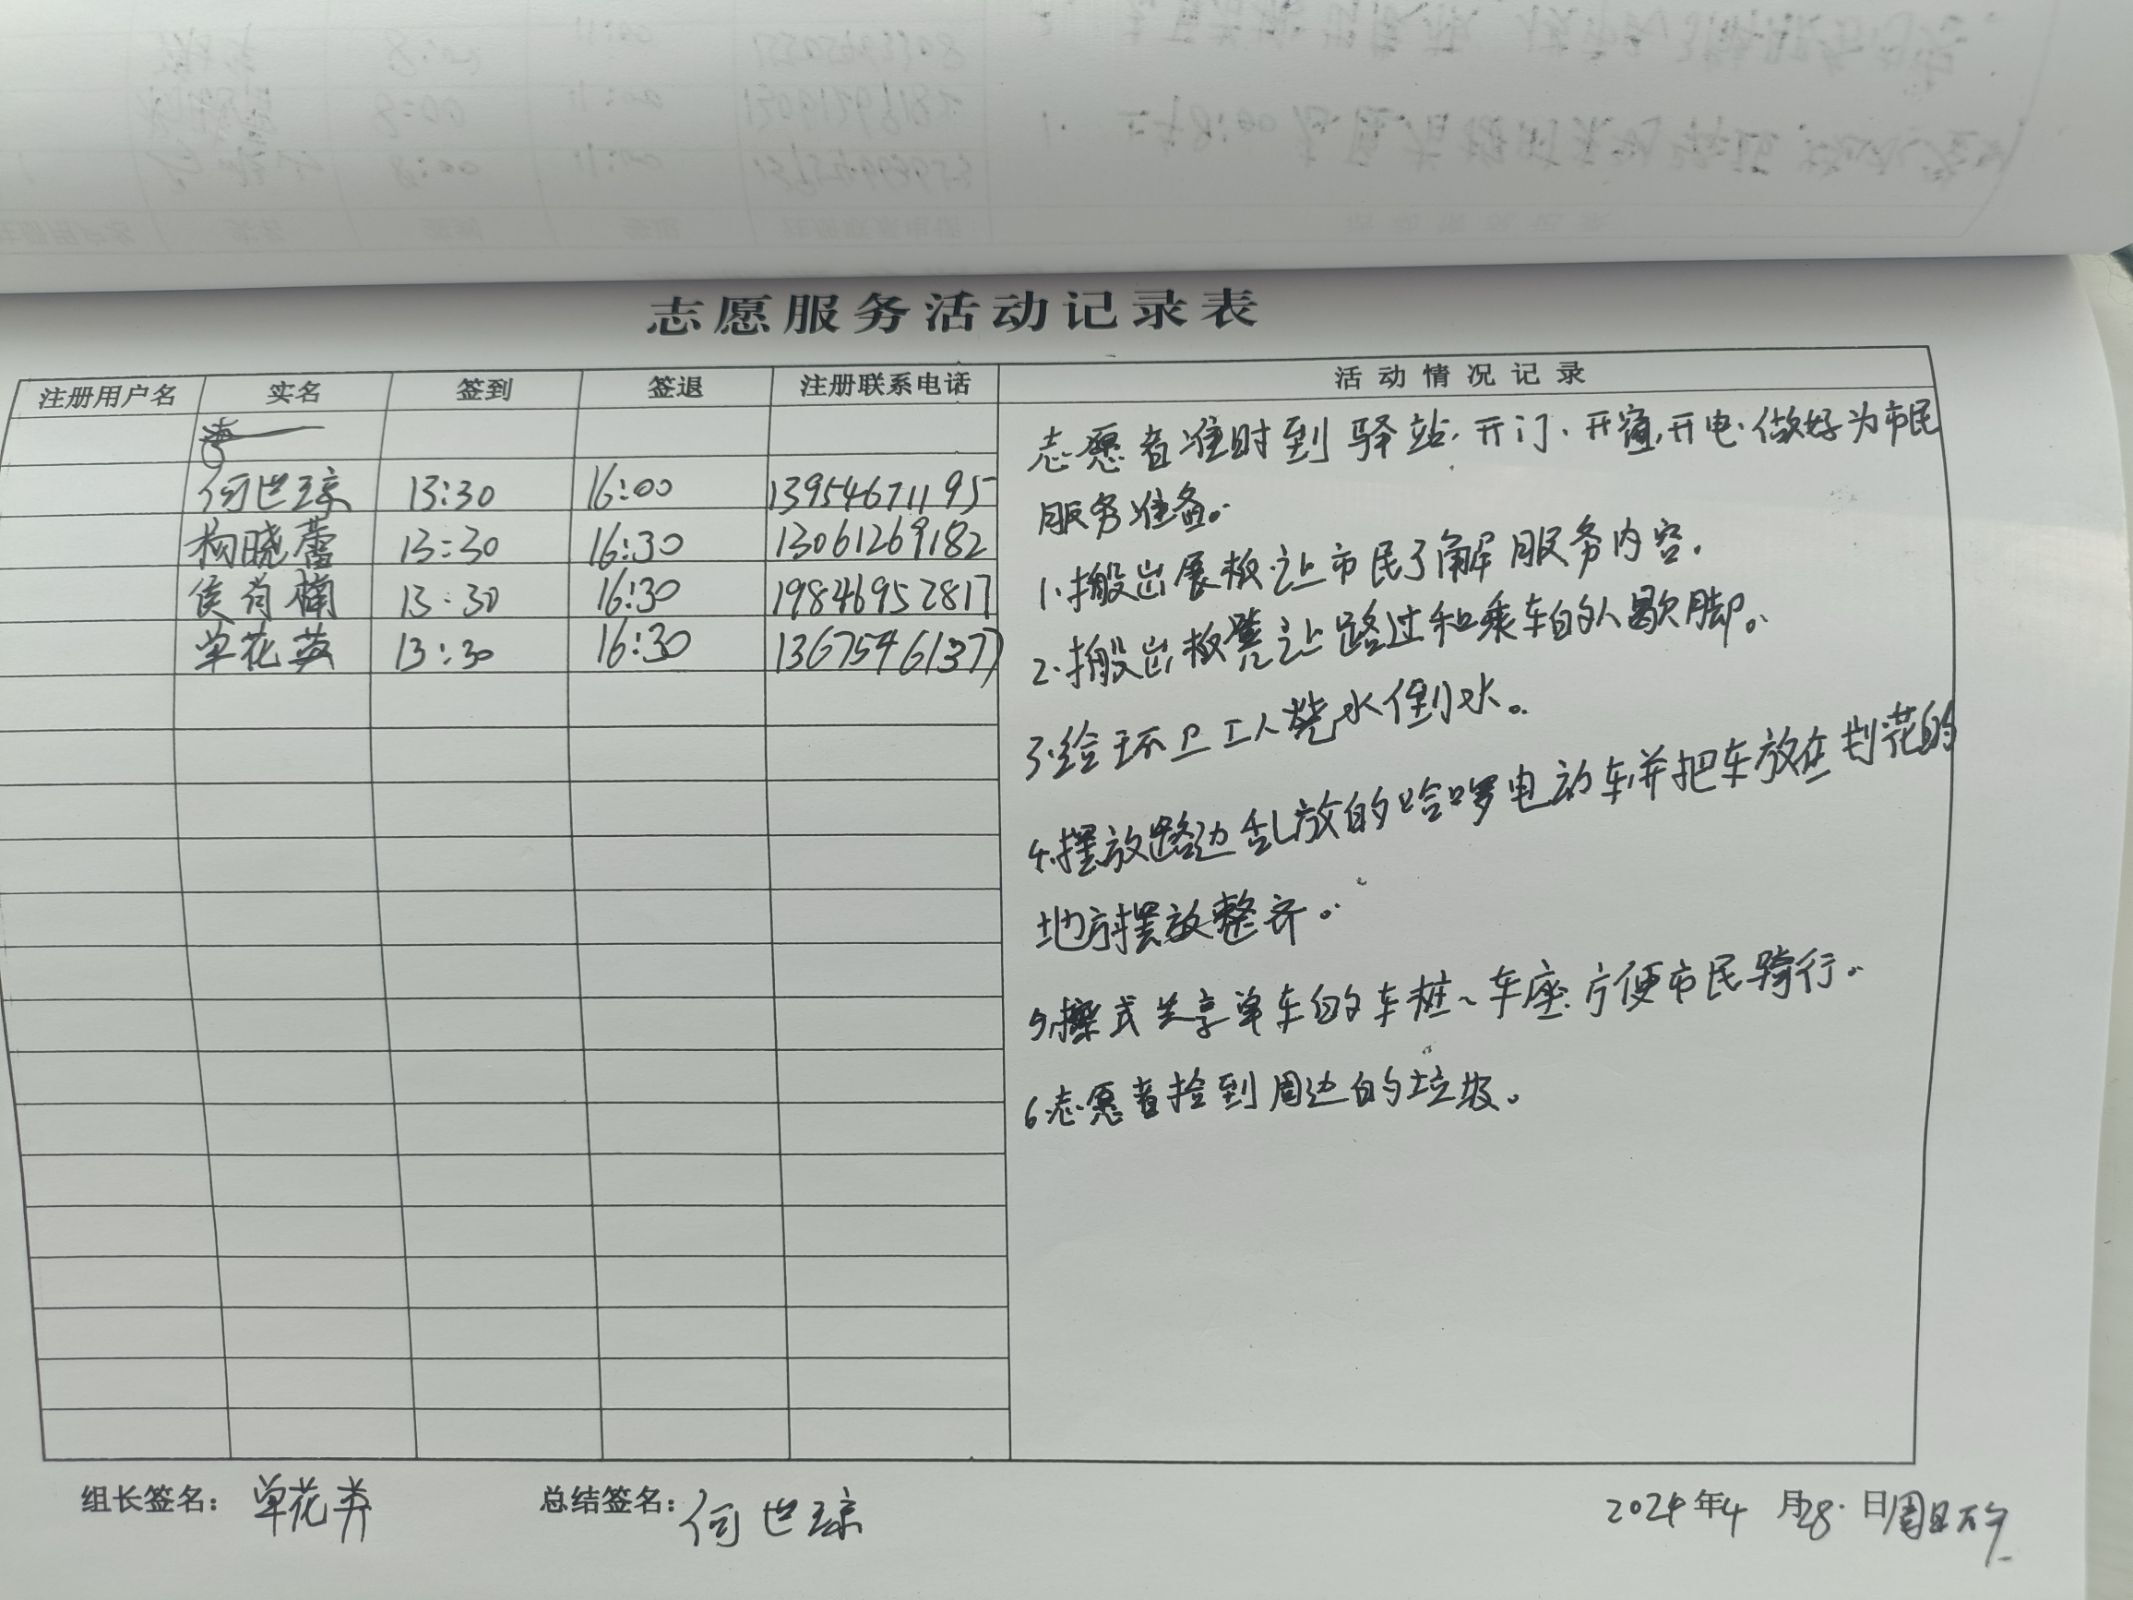 志愿服务活动记录表
注册用户名 实名 签到 签退 注册联系电话 活动情况记录
何世琼 13:30 16:00 13954671195
杨晓蕾 13:30 16:30 13061269182
侯肖楠 13:30 16:30 19846952817
单花英 13:30 16:30 13675461377
志愿者准时到驿站.开门.开窗,开电.做好为市民
服务准备.
1.搬出展板.让市民了解服务内容.
2.搬出板凳让路过和乘车的人歇脚。
3.给环卫工人烧水倒水。
4.摆放路边乱放的哈啰电动车并把车放在划花的
地方摆放整齐。
5.擦式共享单车的车桩、车座.方便市民骑行。
6.志愿者捡到周边的垃圾。
组长签名: 单花英 总结签名: 何世琼 2024年4月28.日周日下午